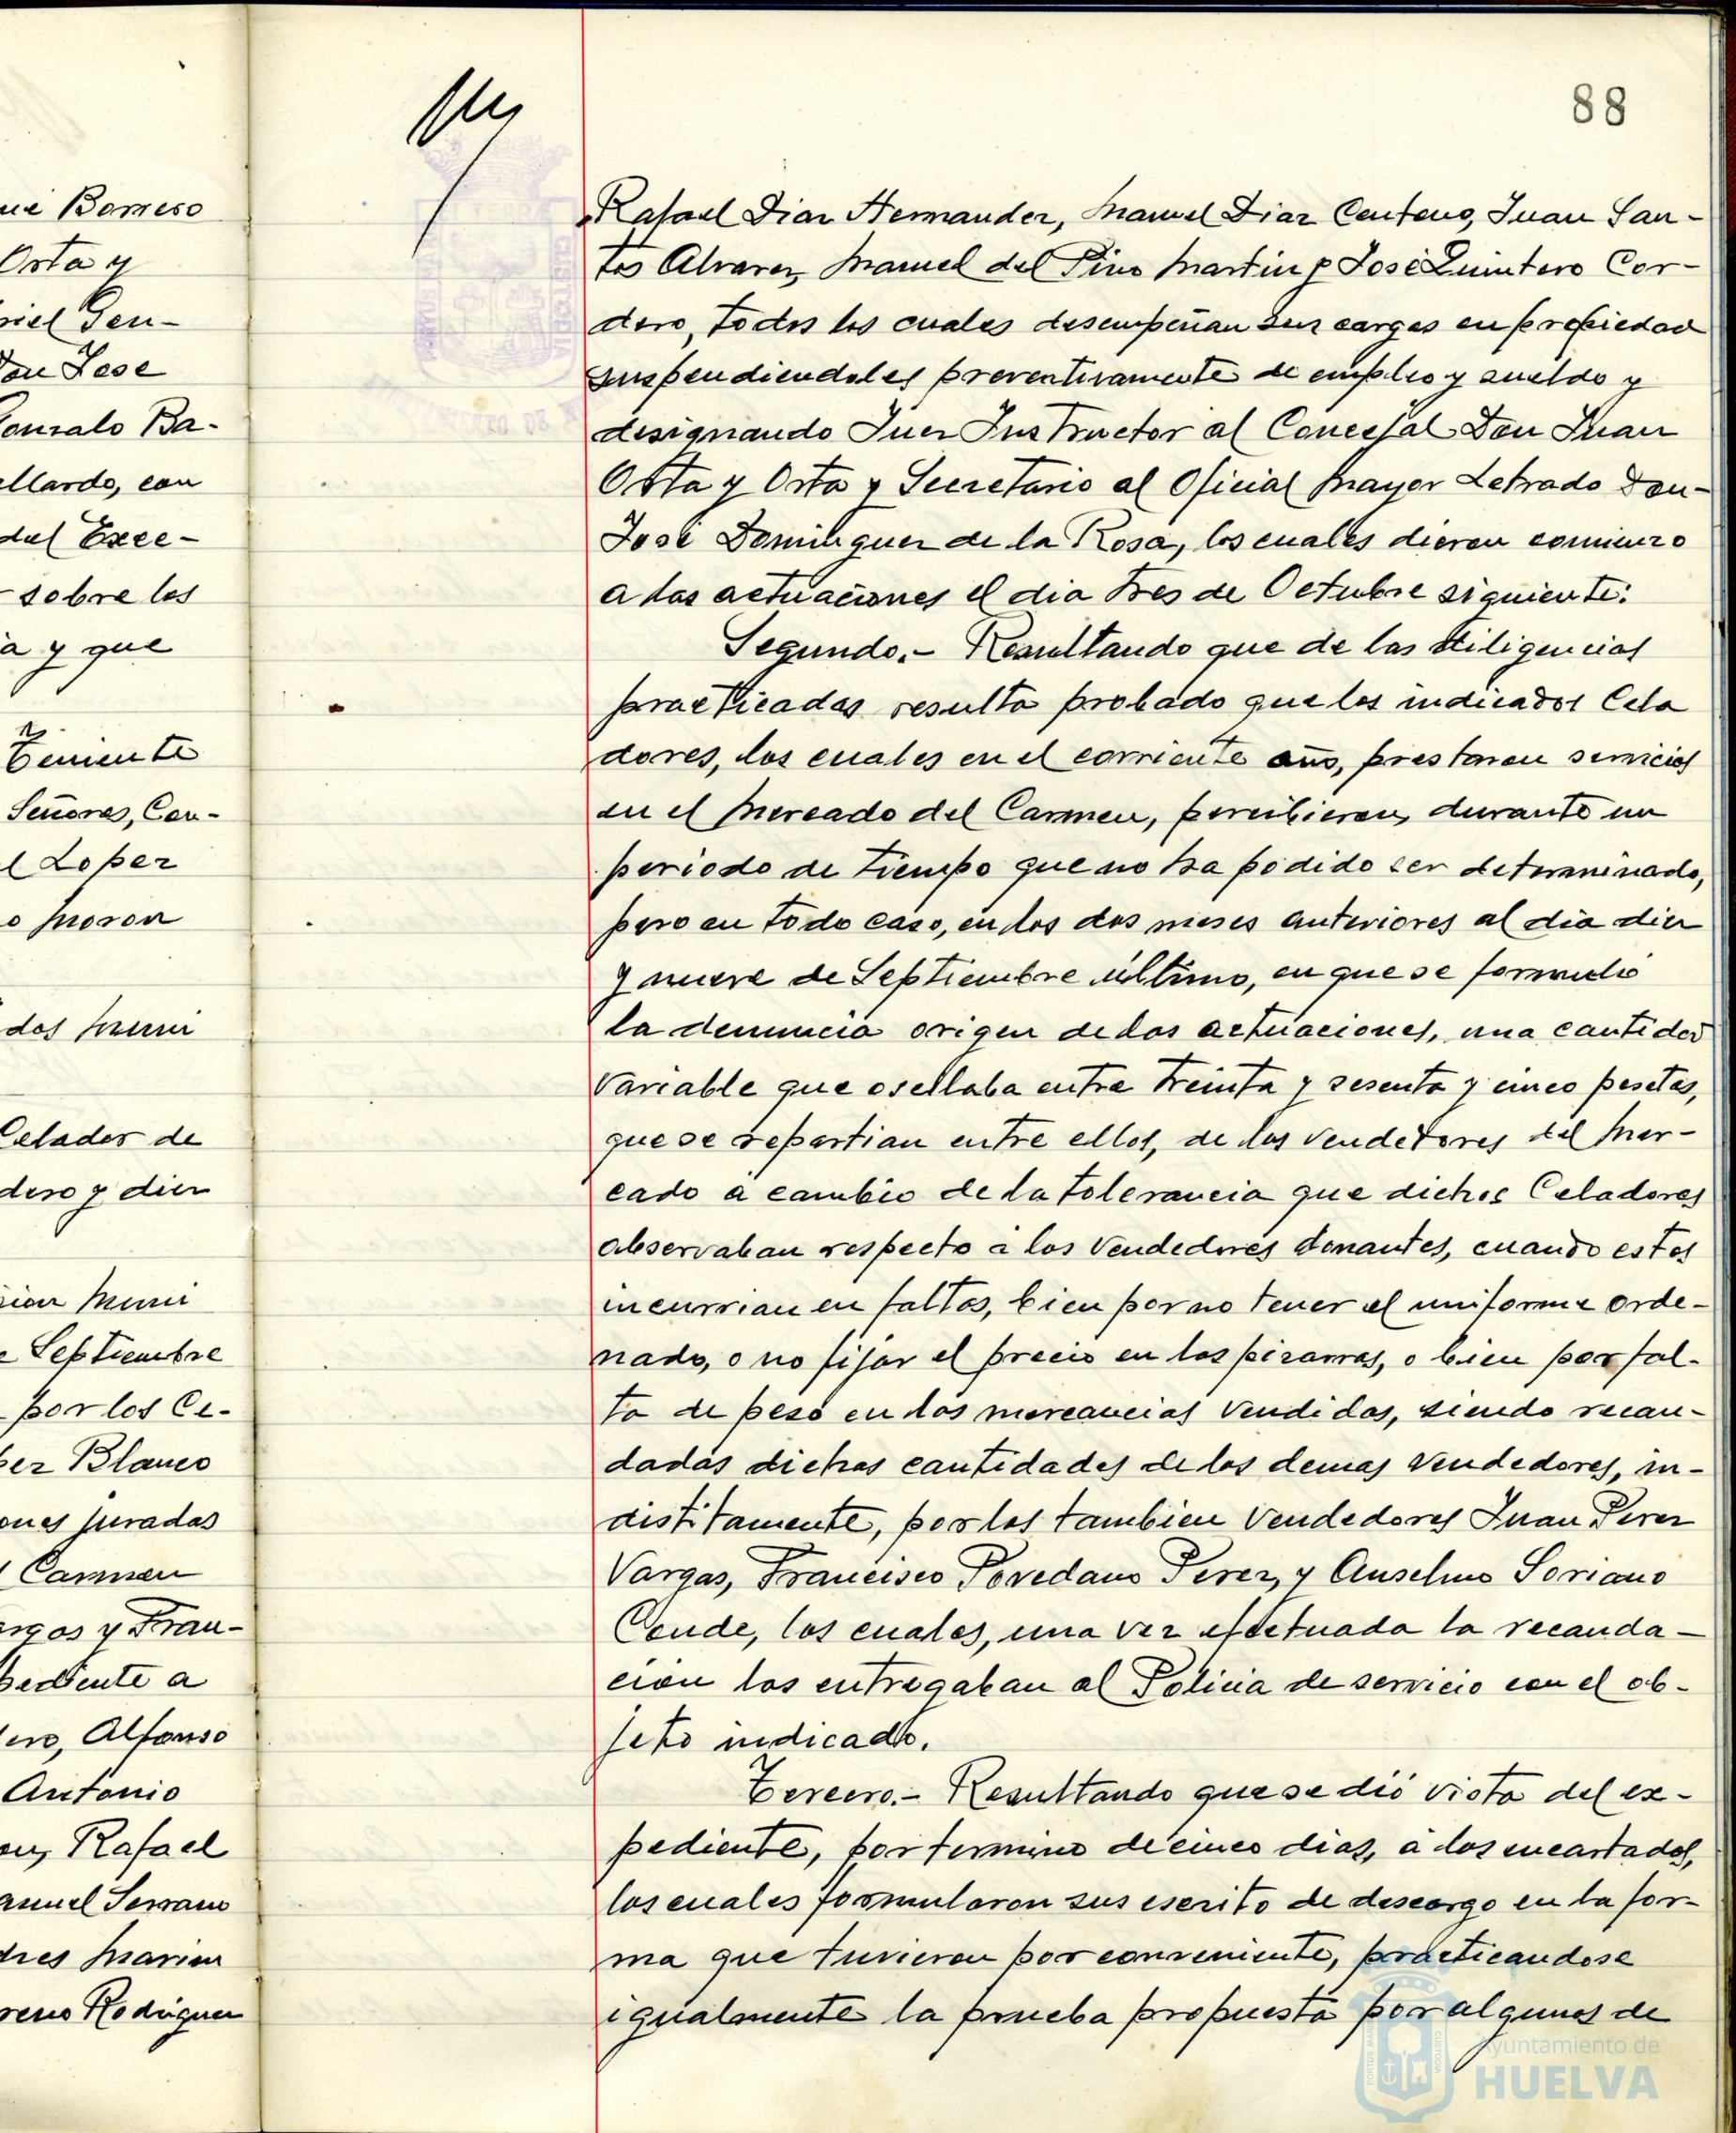 ue Borrero
Orta y
riel Gen-
Don Jose
Gonzalo Ba-
ellardo, con
del Exce-
sobre los
a y que
Teniente
Señores, Con-
l Lopez
o Moron
dos Muni
Celador de
dero y diez
cion Muni
e Septiembre
por los Ce-
pez Blanco
ones juradas
l Carmen
argas y Fran-
pediente a
ero, Alfonso
Antonio
on, Rafael
anuel Serrano
dres Marin
reno Rodriguez
88
Rafael Diaz Hernandez, Manuel Diaz Centeno, Juan San-
tos Alvarez, Manuel del Pino Martin y José Quintero Cor-
dero, todos los cuales desempeñan sus cargos en propiedad
suspendiendoles preventivamente de empleo y sueldo y
designando Juez Instructor al Concejal Don Juan
Orta y Orta y Secretario al Oficial Mayor Letrado Don
José Dominguez de la Rosa, los cuales dieron comienzo
a las actuaciones el dia tres de Octubre siguiente.
Segundo.- Resultando que de las diligencias
practicadas resulta probado que los indicados Cela
dores, los cuales en el corriente año, prestaron servicios
en el Mercado del Carmen, percibieron, durante un
periodo de tiempo que no ha podido ser determinado,
pero en todo caso, en los dos meses anteriores al dia diez
y nueve de Septiembre último, en que se formuló
la denuncia origen de las actuaciones, una cantidad
variable que osellaba entre treinta y sesenta y cinco pesetas,
que se repartian entre ellos, de los vendedores del Mer-
cado a cambio de la tolerancia que dichos Celadores
observaban respecto a los Vendedores donantes, cuando estos
incurrian en faltas, bien por no tener el uniforme orde-
nado, o no fijar el precio en las pizarras, o bien por fal-
ta de peso en las mercancias vendidas, siendo recau-
dadas dichas cantidades de los demas Vendedores, in-
distitamente, por los tambien Vendedores Juan Perez
Vargas, Francisco Povedano Perez, y Anselmo Soriano
Conde, los cuales, una vez efectuada la recauda-
cion las entregaban al Policia de servicio con el ob-
jeto indicado.
Tercero.- Resultando que se dió vista del ex-
pediente, por termino de cinco dias, a los encartados,
los cuales formularon sus escrito de descargo en la for-
ma que tuvieron por conveniente, practicandose
igualmente la prueba propuesta por algunos de
Ayuntamiento de
HUELVA